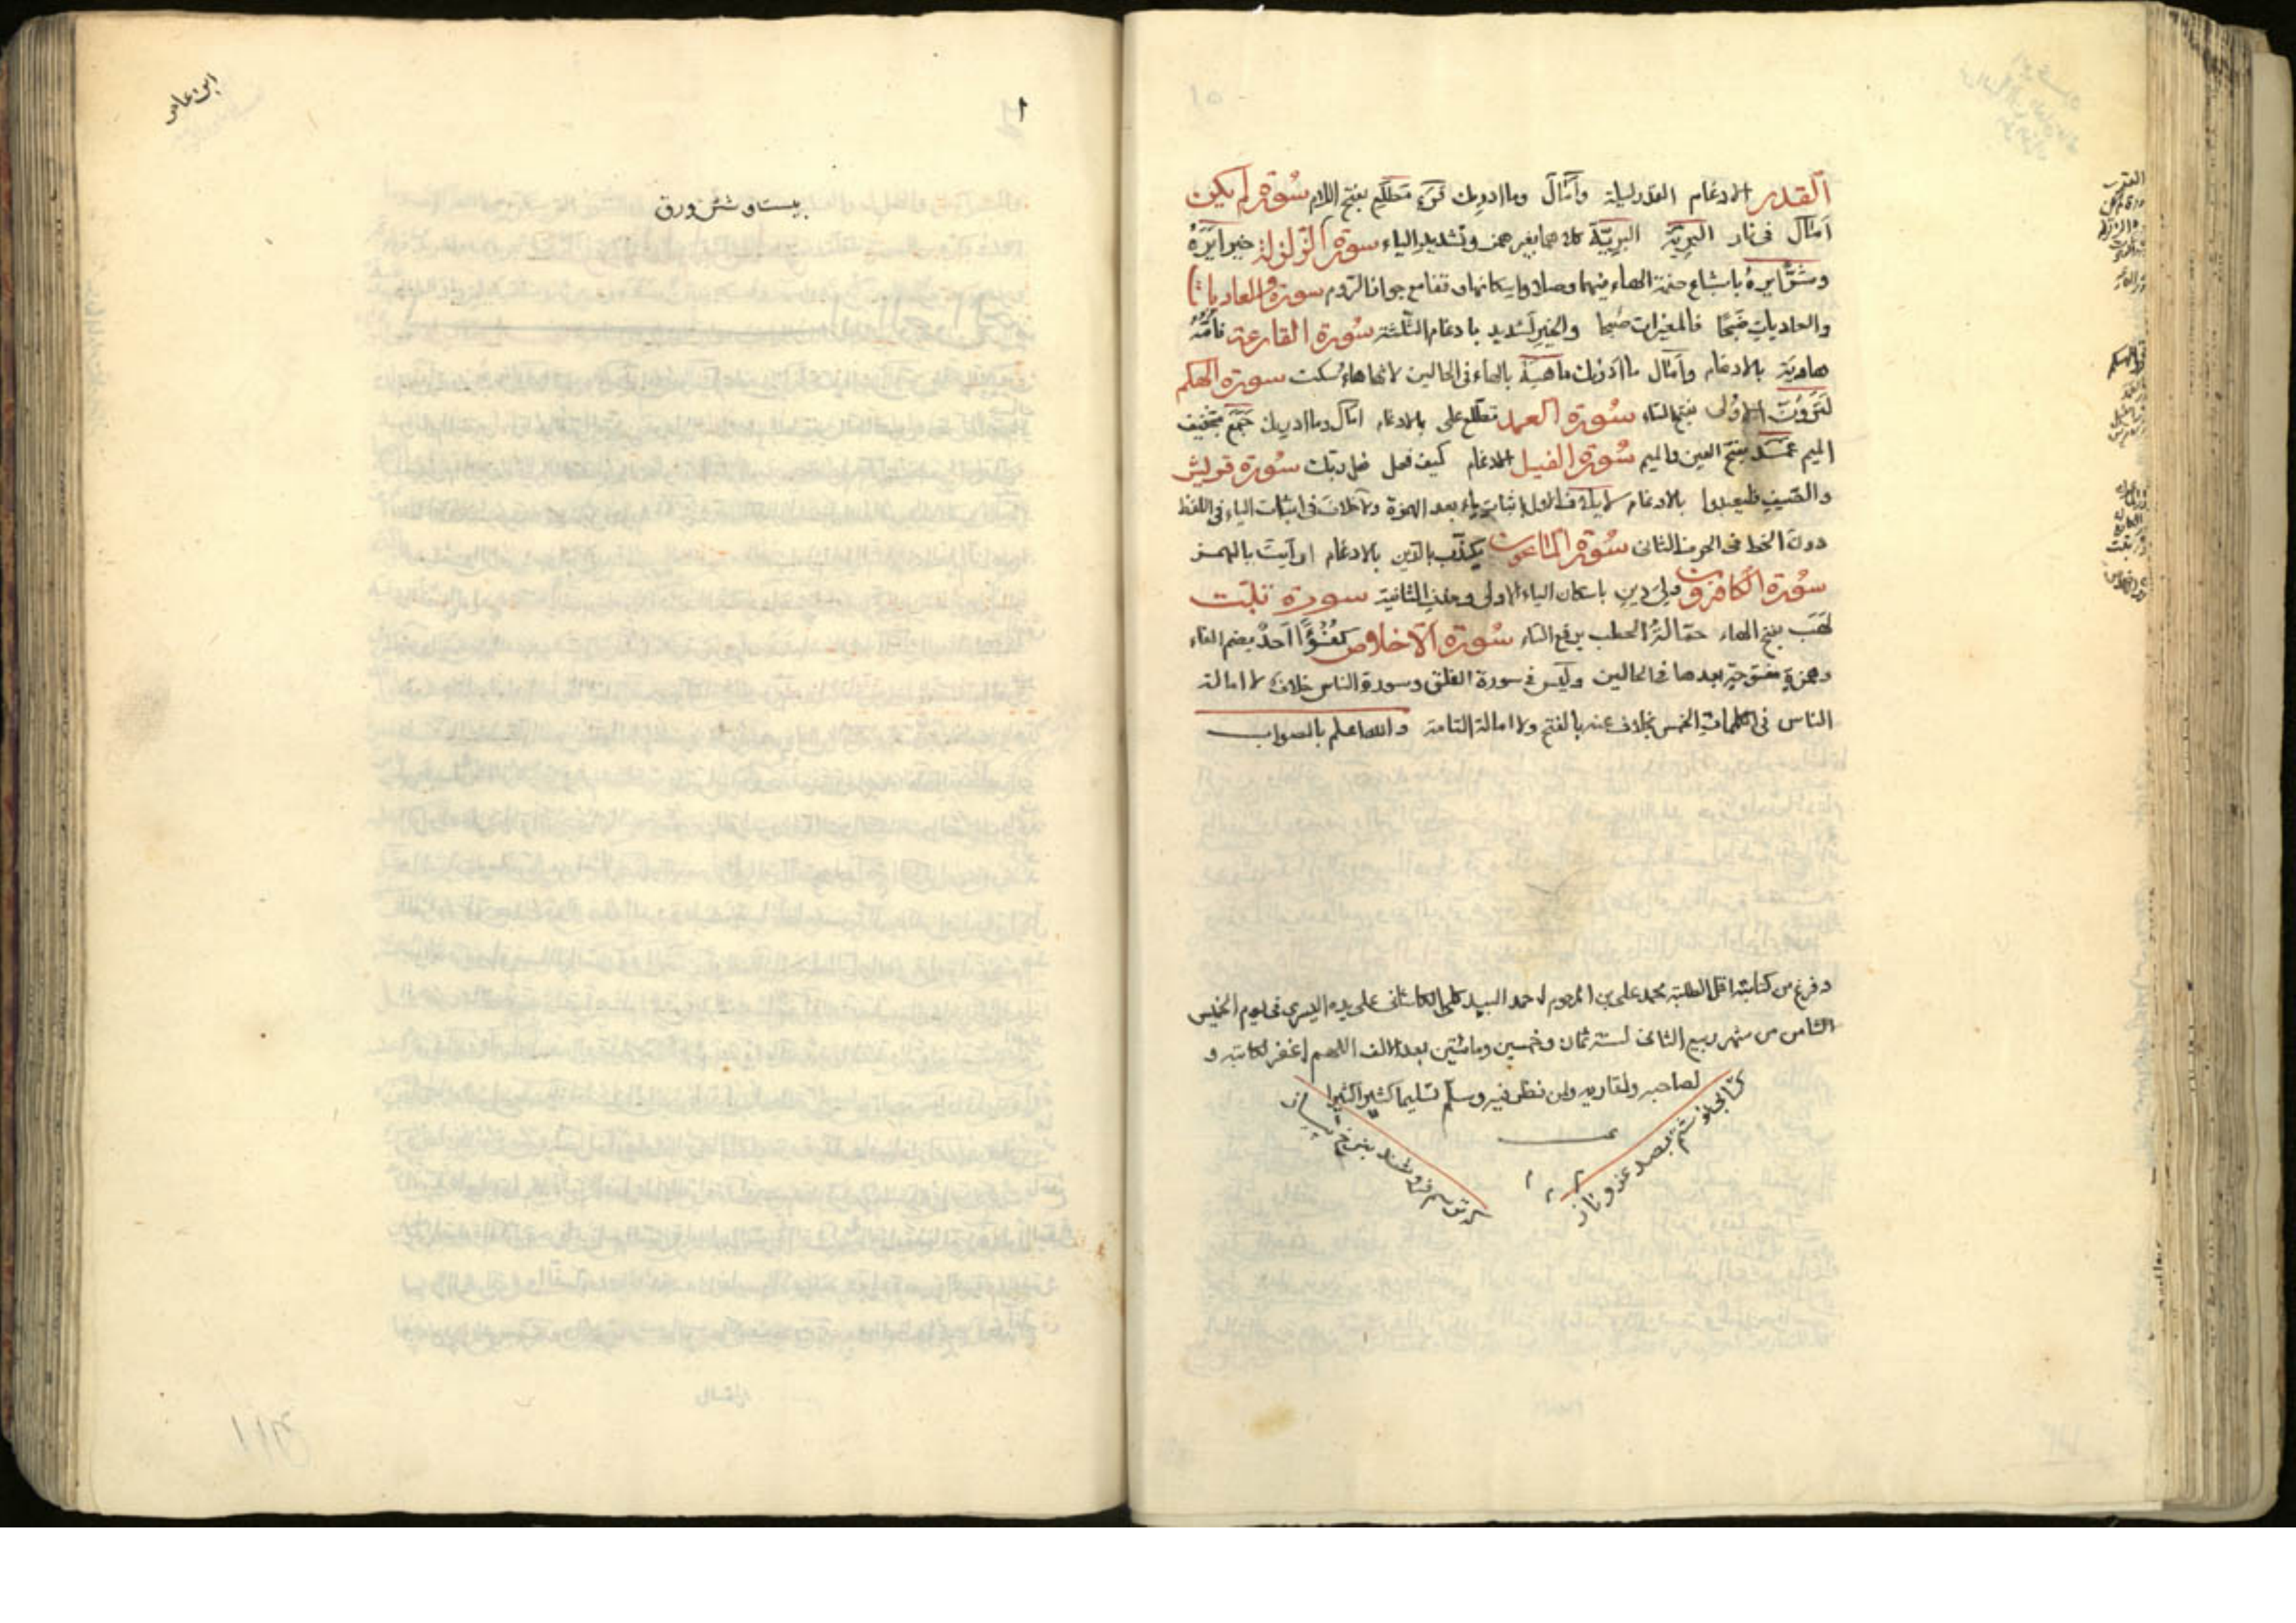 القدر الادغام القدر ليلة وامال وما ادريك قرء مطلع بفتح اللام سورة لم يكن
امال فى نار البرية البرية كلاهما بغير همز وتشديد الياء سورة الزلزلة خيرا يره
وشرا يره باشباع ضمة الهاء فيهما وصلا واسكانها وقفا مع جواز الروم سورة والعاديات
والعاديات ضبحا فالمغيرات صبحا والخير لشديد بادغام الثلثة سورة القارعة فامه
هاوية بالادغام وامال ما ادريك ماهيه بالهاء فى الحالين لانها هاء سكت سورة الهكم
لترون الاولى بفتح التاء سورة العمد تطلع على بالادغام امال وما ادريك جمع بتخفيف
الميم عمد بفتح العين والميم سورة الفيل الادغام كيف فعل ربك سورة قريش
والصيف فليعبدوا بالادغام لايلاف الاول باثبات ياء بعد الهمزة ولا خلاف فى اثبات الياء فى اللفظ
دون الخط فى الحرف الثانى سورة الماعون يكذب بالدين بالادغام ارايت بالهمز
سورة الكافرون ولى دين باسكان الياء الاولى وحذف الثانية سورة تبت
لهب بفتح الهاء حمالة الحطب برفع التاء سورة الاخلاص كفؤا احد بضم الفاء
وهمزة مفتوحة بعدها فى الحالين وليس فى سورة الفلق وسورة الناس خلاف الا امالة
الناس فى الكلمات الخمس بخلاف عنه بالفتح والامالة التامة والله اعلم بالصواب
وفرغ من كتابته اقل الطلبة محمد على بن المرحوم احمد السيد الكاشانى على يده اليسرى فى يوم الخميس
الثامن من شهر ربيع الثانى لسنة ثمان وخمسين ومائتين بعد الالف اللهم اغفر لكاتبه و
لصاحبه ولقاريه ولمن نظر فيه وسلم تسليما كثيرا كثيرا
نوشتم بصد عز و ناز
ترسم فروشند بنرخ پیاز
القدر
الهكم
ابن عامر
١
بيست و شش ورق